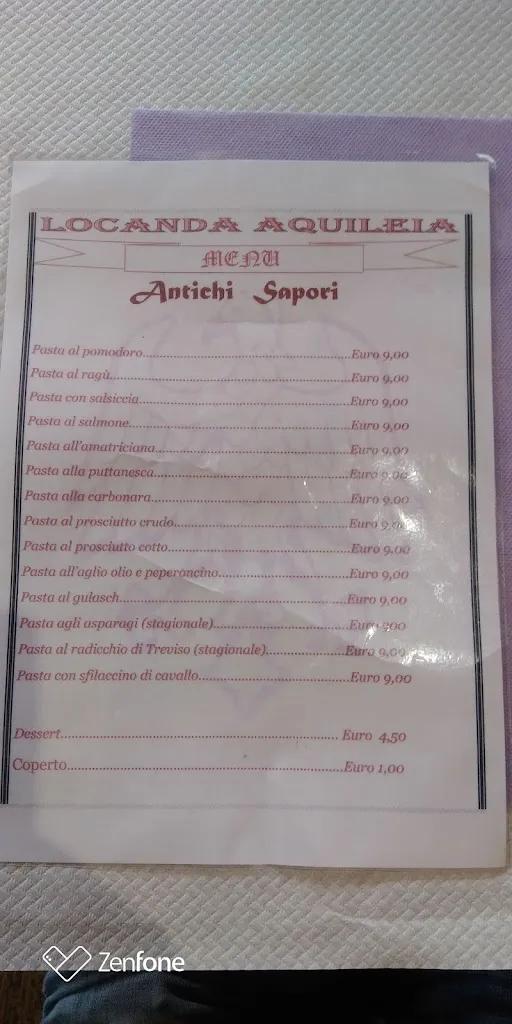 LOCANDA AQUILEIA
MENU
Antichi Sapori
Pasta al pomodoro......Euro 9,00
Pasta al ragù......Euro 9,00
Pasta con salsiccia......Euro 9,00
Pasta al salmone......Euro 9,00
Pasta all'amatriciana......Euro 9,00
Pasta alla puttanesca......Euro 9,00
Pasta alla carbonara......Euro 9,00
Pasta al prosciutto crudo......Euro 9,00
Pasta al prosciutto cotto......Euro 9,00
Pasta all'aglio olio e peperoncino......Euro 9,00
Pasta al gulasch......Euro 9,00
Pasta agli asparagi (stagionale)......Euro
Pasta al radicchio di Treviso (stagionale)......Euro 9,00
Pasta con sfilaccino di cavallo......Euro 9,00
Dessert......Euro 4,50
Coperto......Euro 1,00
Zenfone